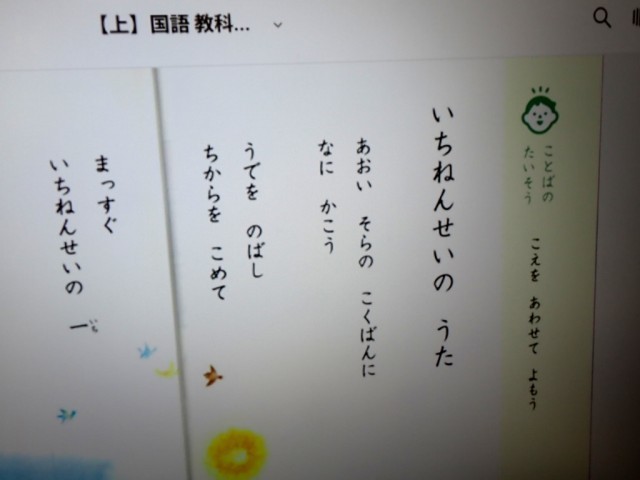 【上】国語 教科...
ことばの
たいそう
こえを あわせて よもう
いちねんせいの うた
あおい そらの こくばんに
なに かこう
うでを のばし
ちからを こめて
まっすぐ
いちねんせいの 一
いち